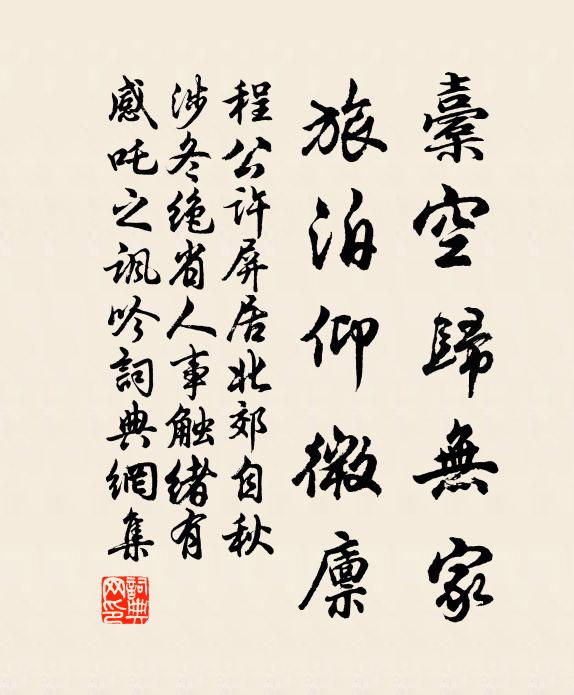 橐空歸無家
旅泊仰微廪
程公許屏居北郊自秋
涉冬绝省人事触绪有
感吒之諷吟詞典網集
詞典网印